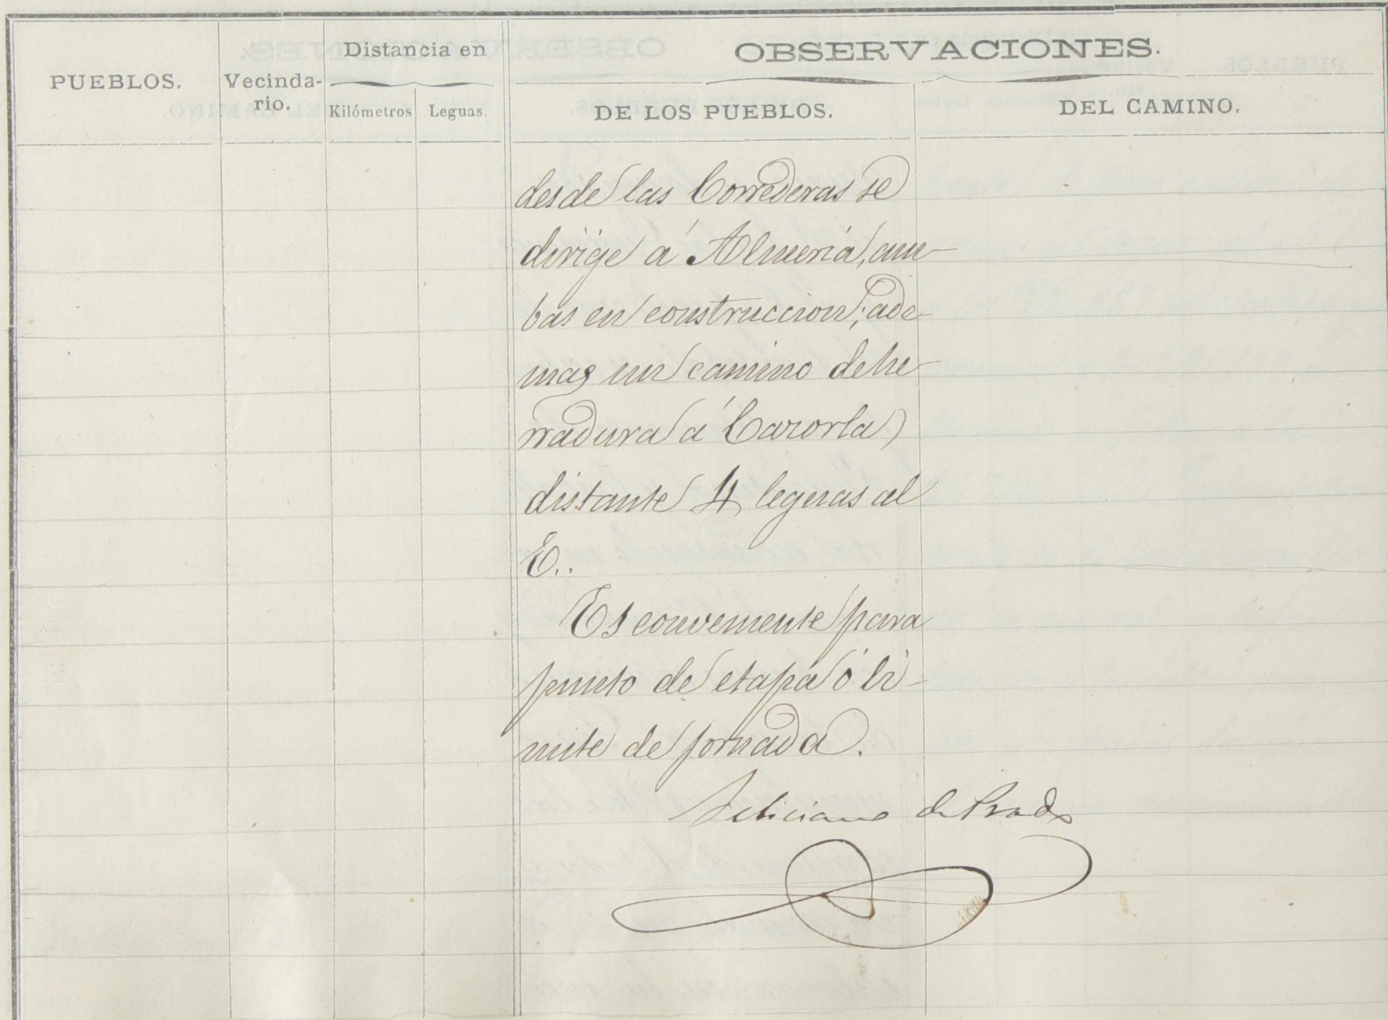 PUEBLOS.
Vecinda-
rio.
Distancia en
Kilómetros
Leguas.
OBSERVACIONES.
DE LOS PUEBLOS.
DEL CAMINO.
desde las Correderas se
dirige á Almería, am-
bas en construccion; ade-
mas un camino de he-
rradura á Cazorla
distante 4 leguas al
E..
Es conveniente para
punto de etapa ó li-
mite de jornada.
Feliciano de Prado